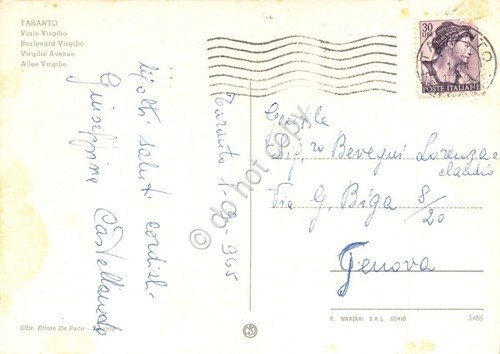 TARANTO
Viale Virgilio
Boulevard Virgilio
Virgilio Avenue
Allee Virgilio
30
LIRE
POSTE ITALIANE
TARANTO
Molti saluti cordiali
Giuseppina Castellaneta
Taranto 1 965
Gentile
Sig. Bevegni Lorenza e
Claudio
Via G. Biga 8/20
Genova
Ediz. Ettore De Pace - Taranto
P. MARZARI S.R.L. SCHIO
3485
do not copy